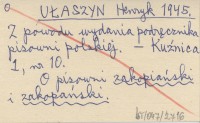 o UŁASZYN Henryk 1945.
Z powodu wydania podręcznika
pisowni polskiej. – Kuźnica
1, nr 10.
O pisowni zakopiański
i zakopański.